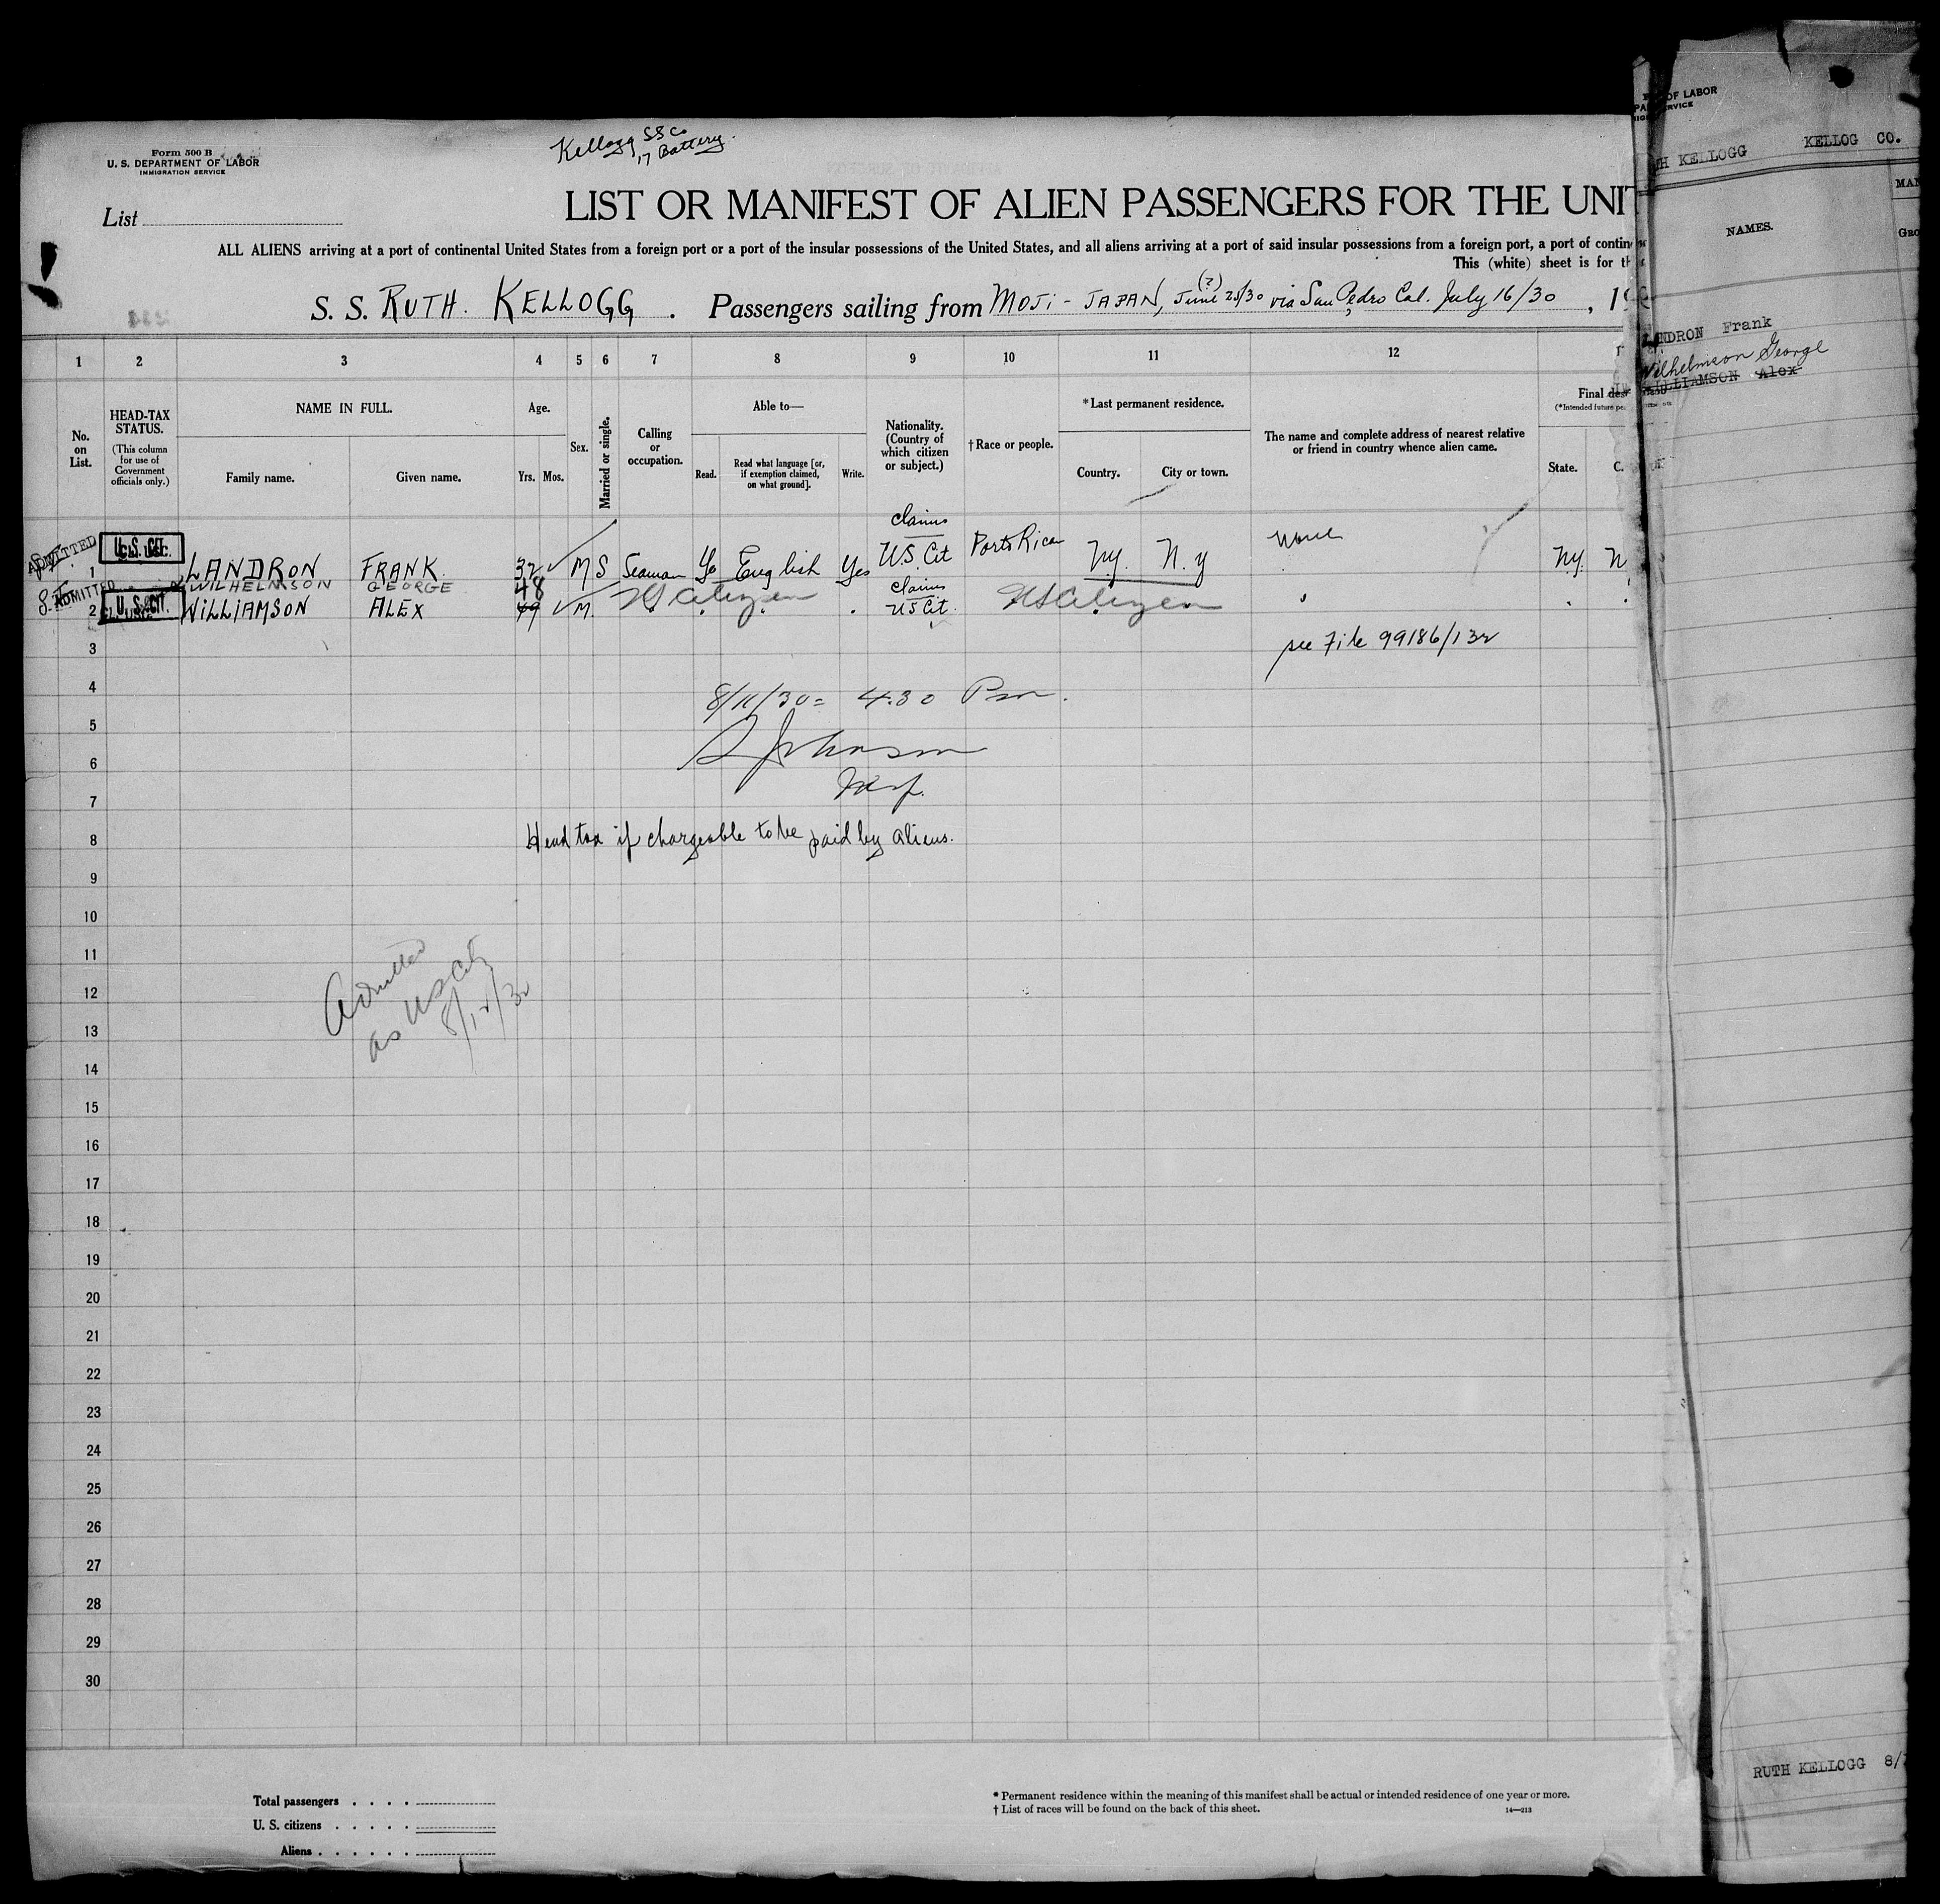 Kellogg SS Co
17 Battery.
Form 500 B
U. S. DEPARTMENT OF LABOR
IMMIGRATION SERVICE
List
LIST OR MANIFEST OF ALIEN PASSENGERS FOR THE UNIT
ALL ALIENS arriving at a port of continental United States from a foreign port or a port of the insular possessions of the United States, and all aliens arriving at a port of said insular possessions from a foreign port, a port of contin
This (white) sheet is for th
S. S. RUTH. KELLOGG . Passengers sailing from MOJI - JAPAN, June (?) 25/30 via San Pedro Cal. July 16/30 , 19
1 2 3 4 5 6 7 8 9 10 11 12
No. on List.
HEAD-TAX STATUS.
(This column for use of Government officials only.)
NAME IN FULL.
Family name. Given name.
Age.
Yrs. Mos.
Sex.
Married or single.
Calling or occupation.
Able to—
Read. Read what language [or, if exemption claimed, on what ground]. Write.
Nationality. (Country of which citizen or subject.)
† Race or people.
*Last permanent residence.
Country. City or town.
The name and complete address of nearest relative or friend in country whence alien came.
Final des
(*Intended future pe
State. C
ADMITTED 1 U. S. CIT. LANDRON FRANK. 32 M S Seaman Ys English Yes claims U.S. Cit Porto Rican N.y. N. y None N.y. N
WILHELMSON GEORGE 48
ADMITTED 2 U. S. CIT. WILLIAMSON ALEX 49 M. US Citizen claims US Cit. US Citizen
3 see File 99186/132
4 8/11/30 = 4:30 Pm.
5
6 S Johnson
7 Insp.
8 Head tax if chargeable to be paid by aliens.
9
10
11 Admitted
12 as US Cit
13 8/12/30
14
15
16
17
18
19
20
21
22
23
24
25
26
27
28
29
30
Total passengers
U. S. citizens
Aliens
* Permanent residence within the meaning of this manifest shall be actual or intended residence of one year or more.
† List of races will be found on the back of this sheet. 14—213
OF LABOR
RVICE
H KELLOGG KELLOG CO.
MAN
NAMES.
GRO
NDRON Frank
Wilhelmson George
ILLIAMSON Alex
RUTH KELLOGG 8/